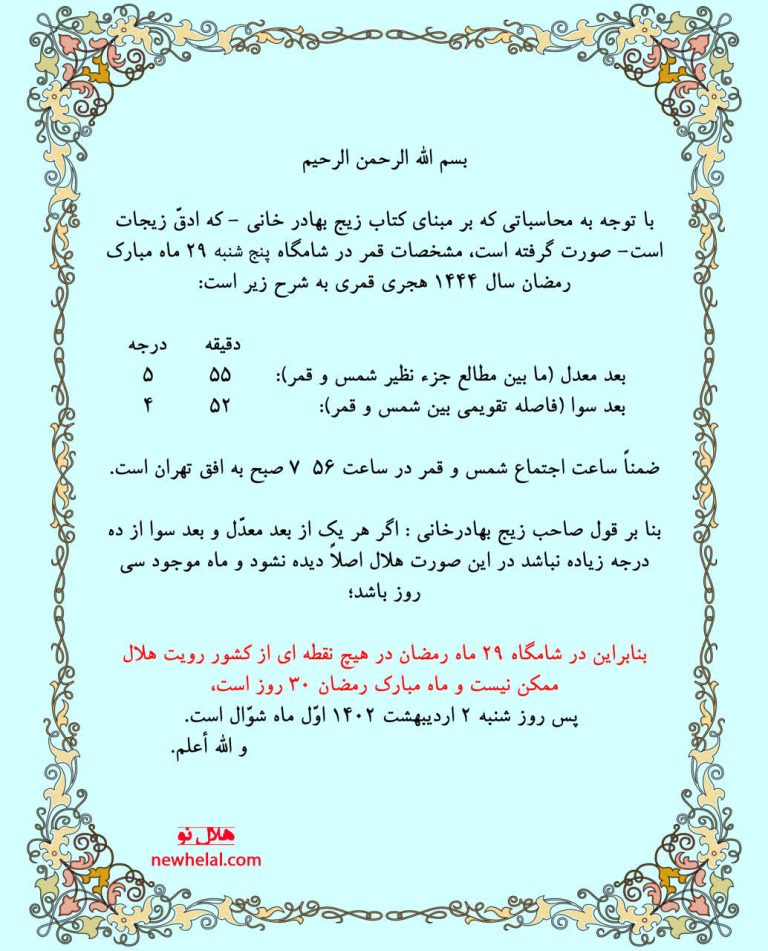 بسم الله الرحمن الرحیم
با توجه به محاسباتی که بر مبنای کتاب زیج بهادر خانی – که ادقّ زیجات
است– صورت گرفته است، مشخصات قمر در شامگاه پنج شنبه ۲۹ ماه مبارک
رمضان سال ۱۴۴۴ هجری قمری به شرح زیر است:
دقیقه درجه
بعد معدل (ما بین مطالع جزء نظیر شمس و قمر): ۵۵ ۵
بعد سوا (فاصله تقویمی بین شمس و قمر): ۵۲ ۴
ضمناً ساعت اجتماع شمس و قمر در ساعت ۵۶ ۷ صبح به افق تهران است.
بنا بر قول صاحب زیج بهادرخانی : اگر هر یک از بعد معدّل و بعد سوا از ده
درجه زیاده نباشد در این صورت هلال اصلاً دیده نشود و ماه موجود سی
روز باشد؛
بنابراین در شامگاه ۲۹ ماه رمضان در هیچ نقطه ای از کشور رویت هلال
ممکن نیست و ماه مبارک رمضان ۳۰ روز است،
پس روز شنبه ۲ اردیبهشت ۱۴۰۲ اوّل ماه شوّال است.
و الله أعلم.
هلال نو
newhelal.com